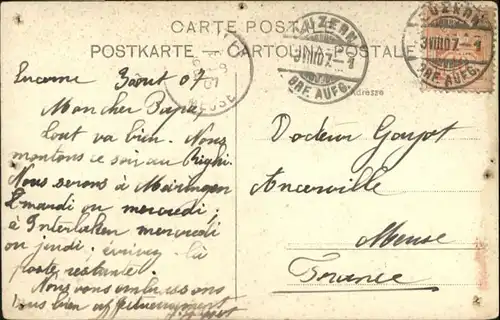 CARTE POSTALE
POSTKARTE — CARTOLINA POSTALE
LUZERN
3 VIII 07
BRF. AUFG.
LUZERN
3 VIII 07
BRF. AUFG.
MEUSE
Adresse
Lucerne 3 août 07
Mon cher Papa,
tout va bien. Nous
montons ce soir au Righi.
Nous serons à Meiringen
mardi ou mercredi,
à Interlaken mercredi
ou jeudi, écrivez là
poste restante.
Nous vous embrassons
tous bien affectueusement
Docteur
Ancerville
Meuse
France